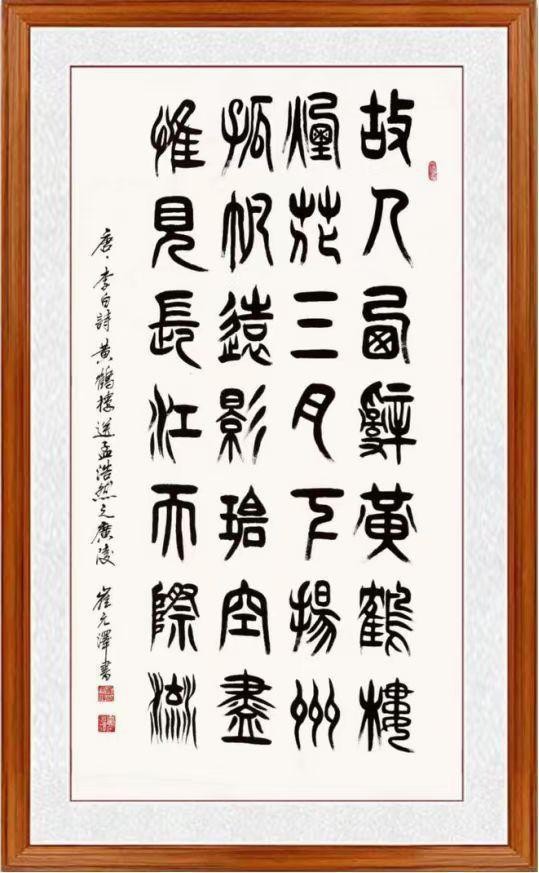 故人西辭黃鶴樓
煙花三月下揚州
孤帆遠影碧空盡
惟見長江天際流
唐·李白詩 黃鶴樓送孟浩然之廣陵 崔元澤書